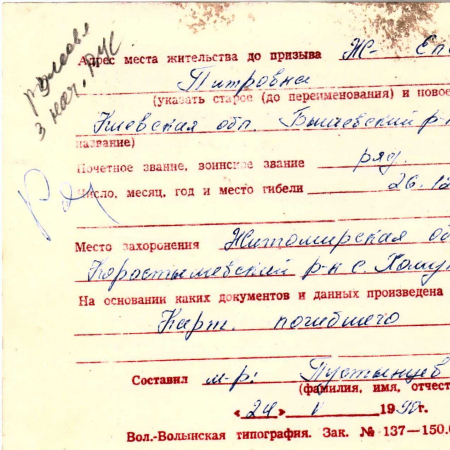 Адрес места жительства до призыва Ж- Епе
Питровна
(указать старое (до переименования) и новое
Киевская обл. Бышевский р-н
название)
Почетное звание, воинское звание ряд.
Число, месяц, год и место гибели 26.12
Место захоронения Житомирская об
Коростышевский р-н с.
На основании каких документов и данных произведена
Карт. погибшего
Составил м-р: Пустынцев
(фамилия, имя, отчест
«24» 1990г.
Вол.-Волынская типография. Зак. № 137—150.0